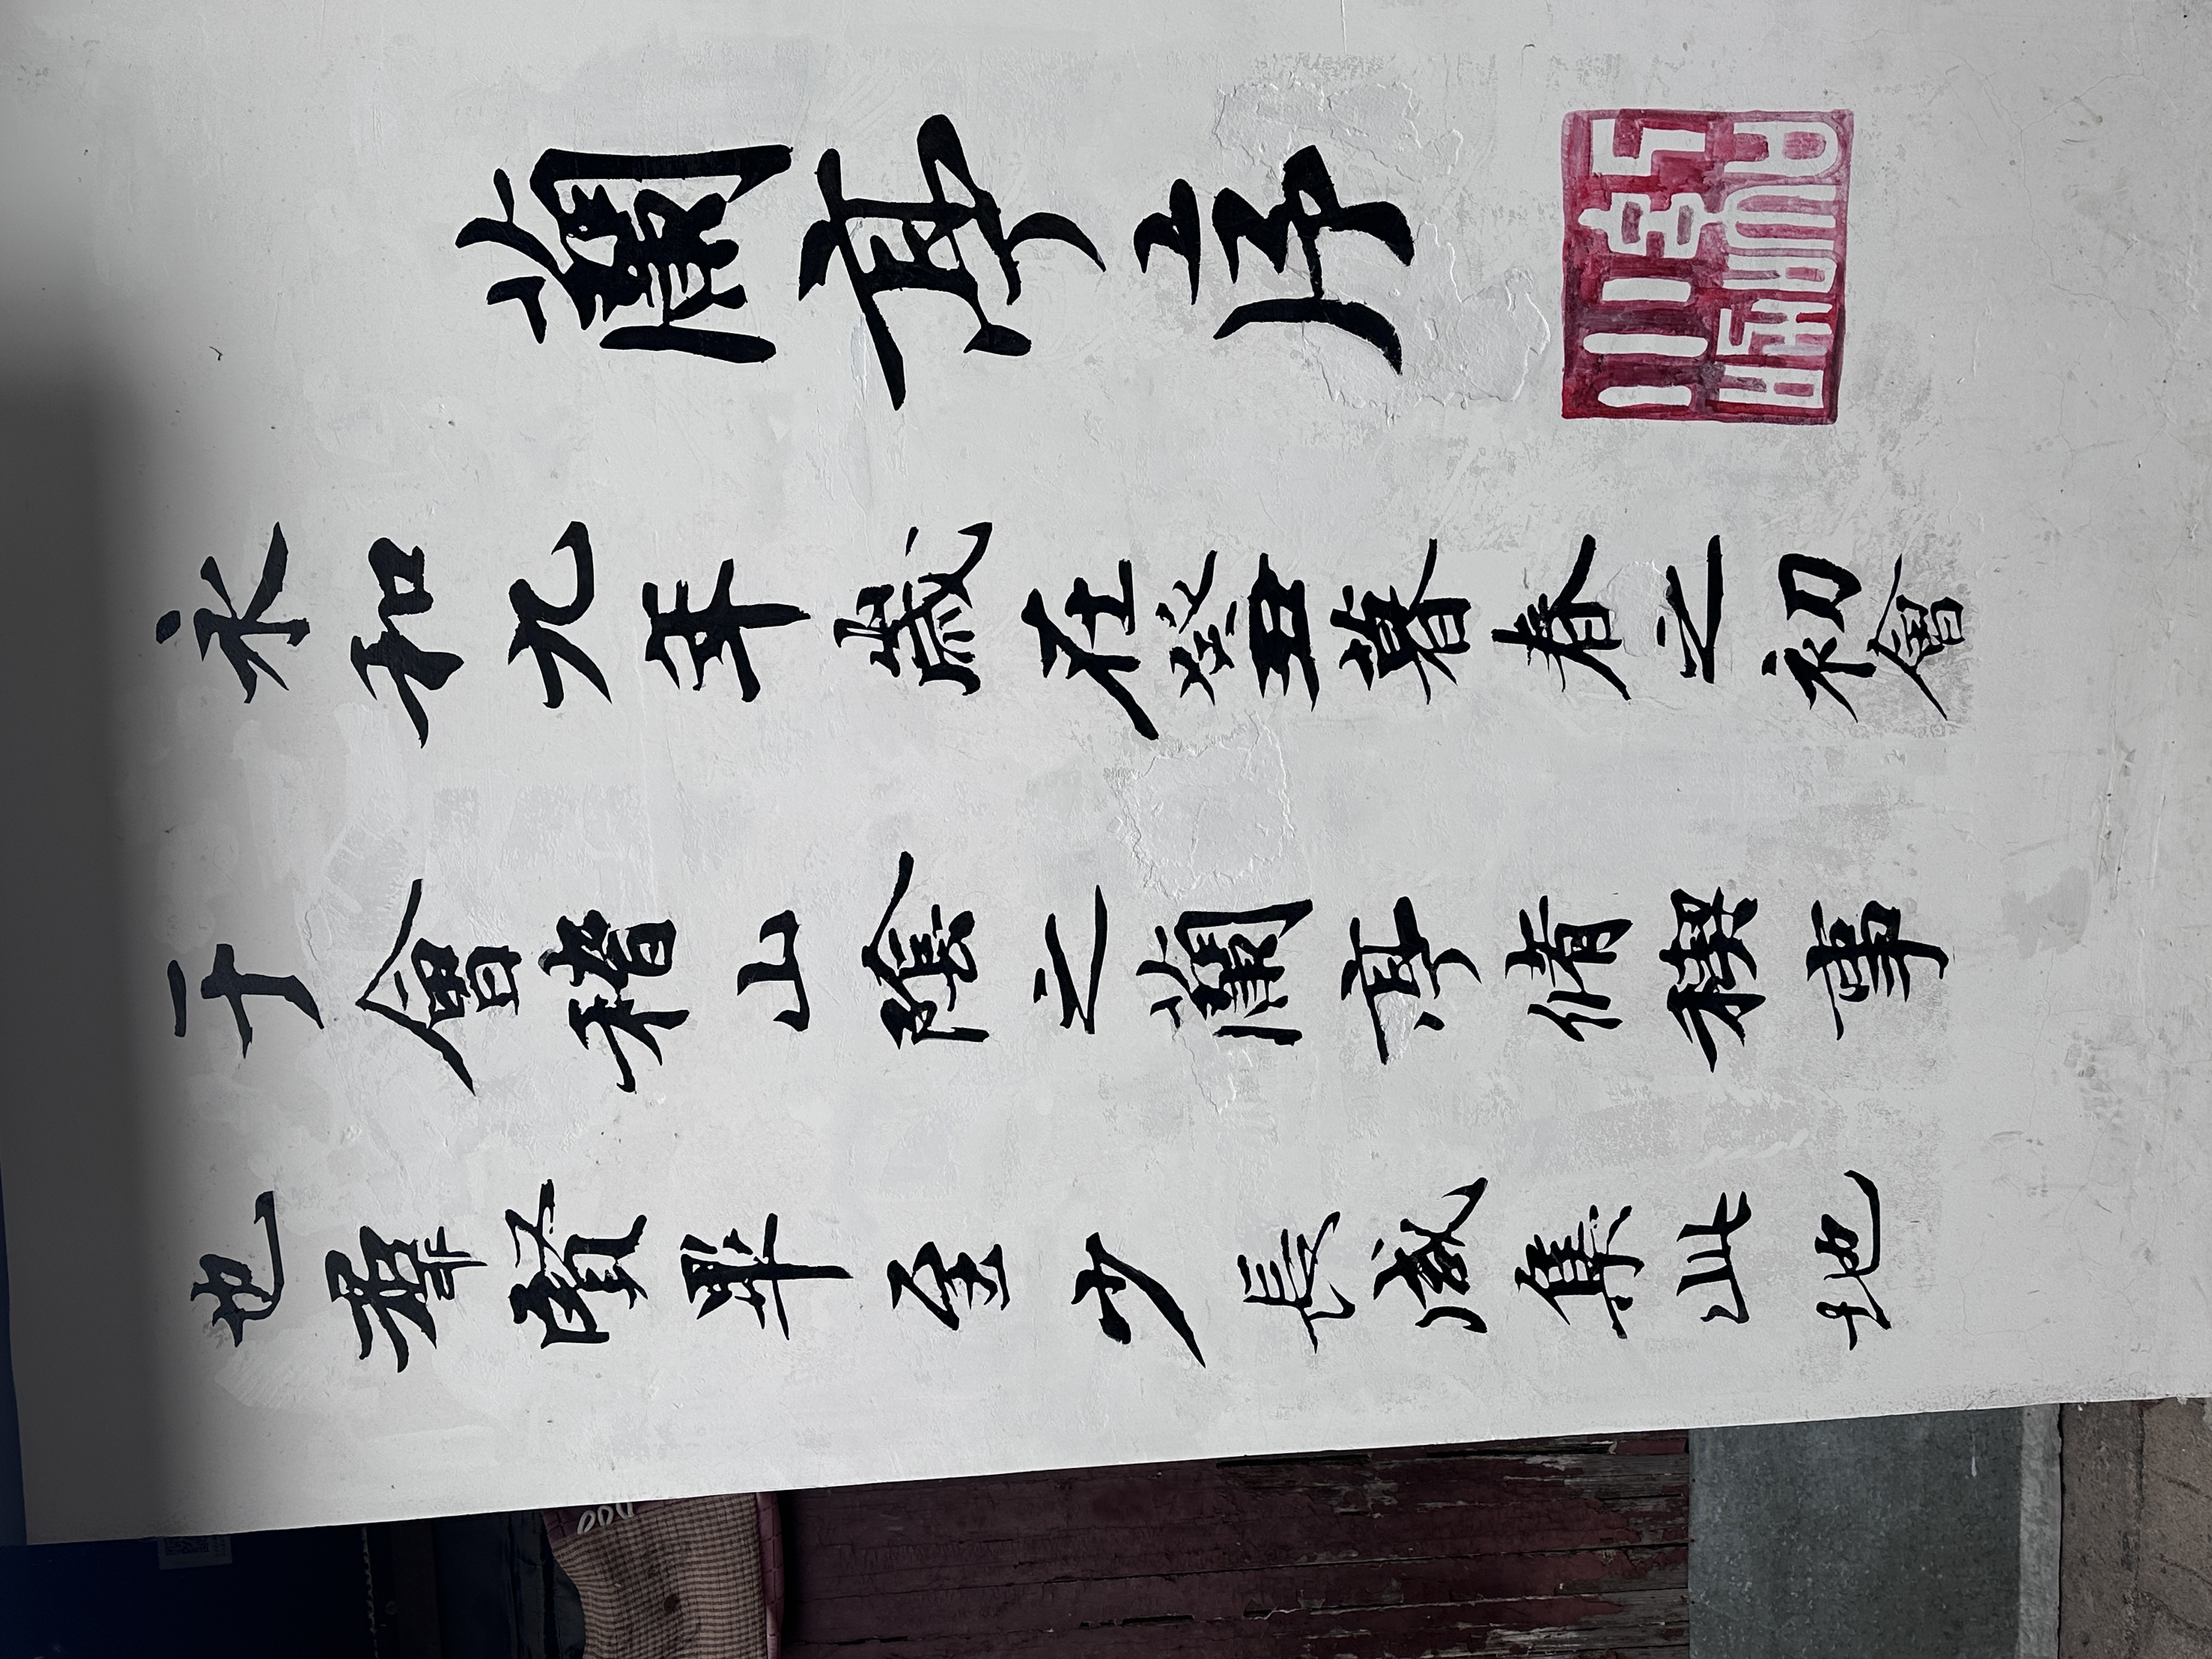 蘭亭序
永和九年歲在癸丑暮春之初會
于會稽山陰之蘭亭脩禊事
也羣賢畢至少長咸集此地